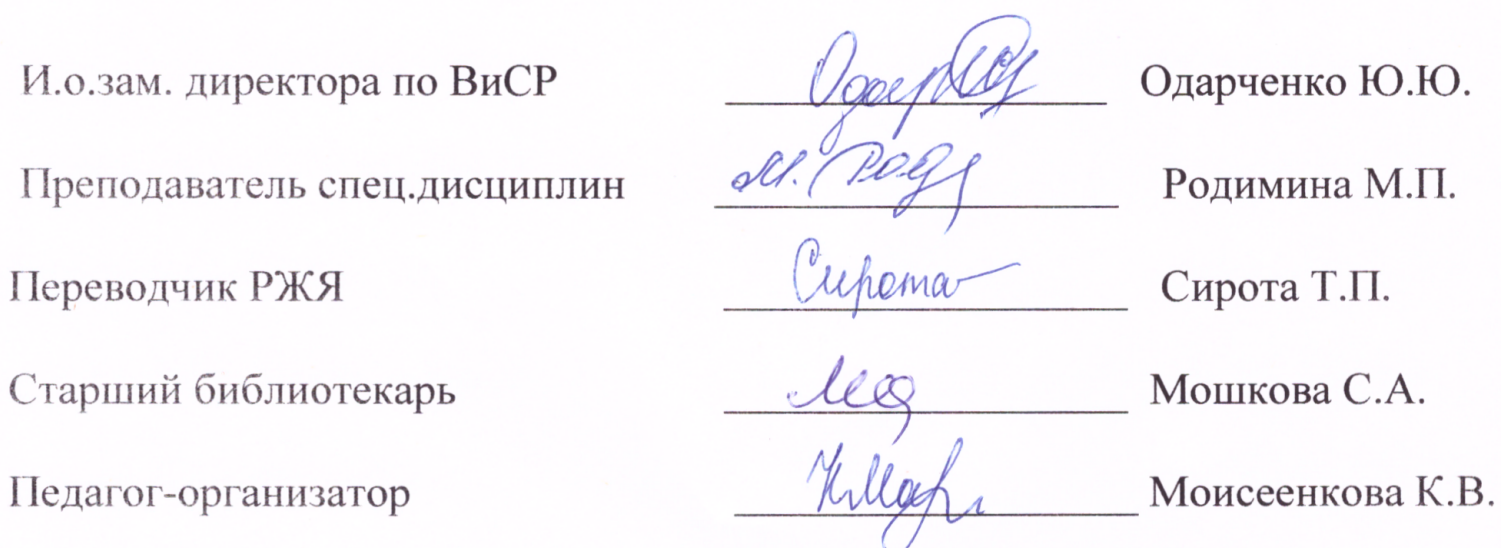 И.о.зам. директора по ВиСР Одарченко Ю.Ю.
Преподаватель спец.дисциплин Родимина М.П.
Переводчик РЖЯ Сирота Сирота Т.П.
Старший библиотекарь Мошкова С.А.
Педагог-организатор Моисеенкова К.В.